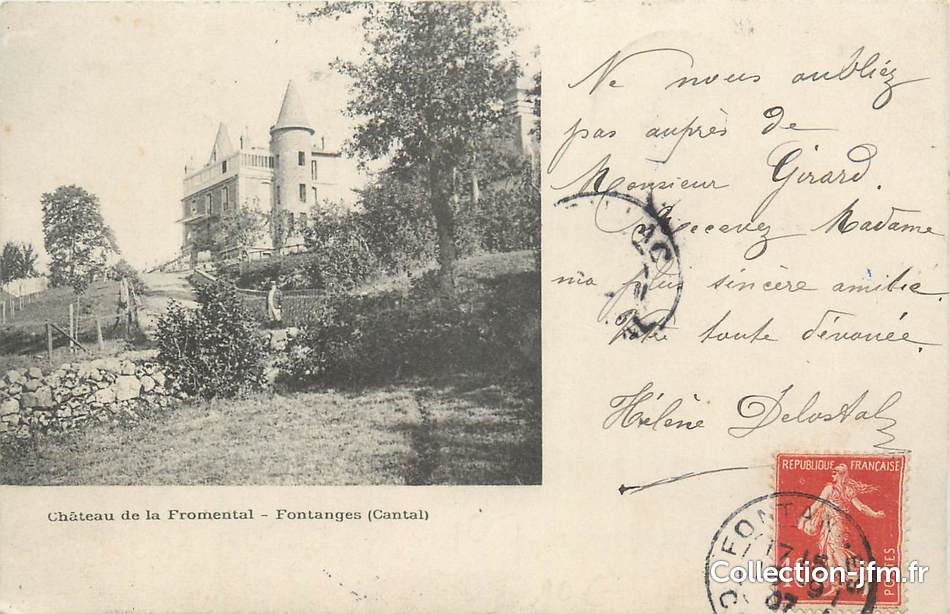 Ne nous oubliez
pas auprès de
Monsieur Girard.
Recevez Madame
ma plus sincère amitié.
Votre toute dévouée.
Hélène Delostal
Château de la Fromental - Fontanges (Cantal)
REPUBLIQUE FRANÇAISE
POSTES
FONTAN
07
Collection-jfm.fr